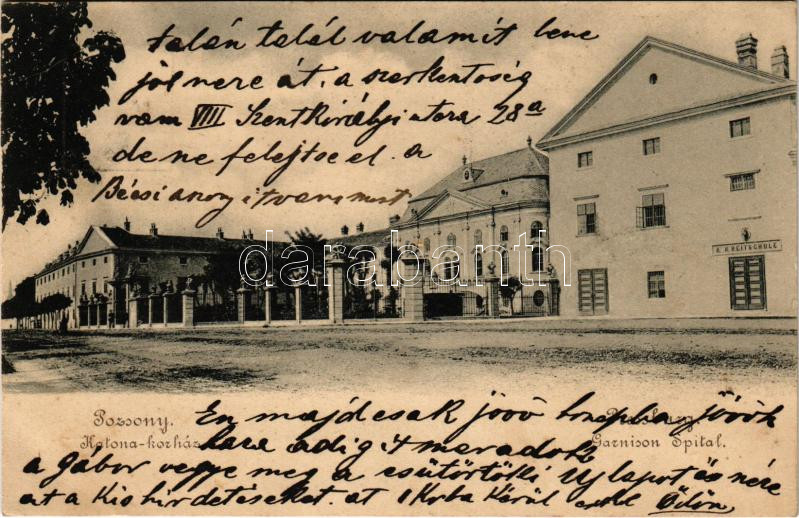 talán talál valamit bene
jól nére át. a szerkentoség
vam VIII Szentkirályi utcza 28a
de ne felejtse el. a
Bécsi
K. K. REITSCHULE
darabanth
Pozsony.
Katona-kórház
Garnison Spital.
En majdcsak jövö honapba jövök
haza adig it maradok
a Gábor vegye meg a csütörtöki Ujlapot és nére
at a Kis hirdetéseket. at Korba Körül Ödön